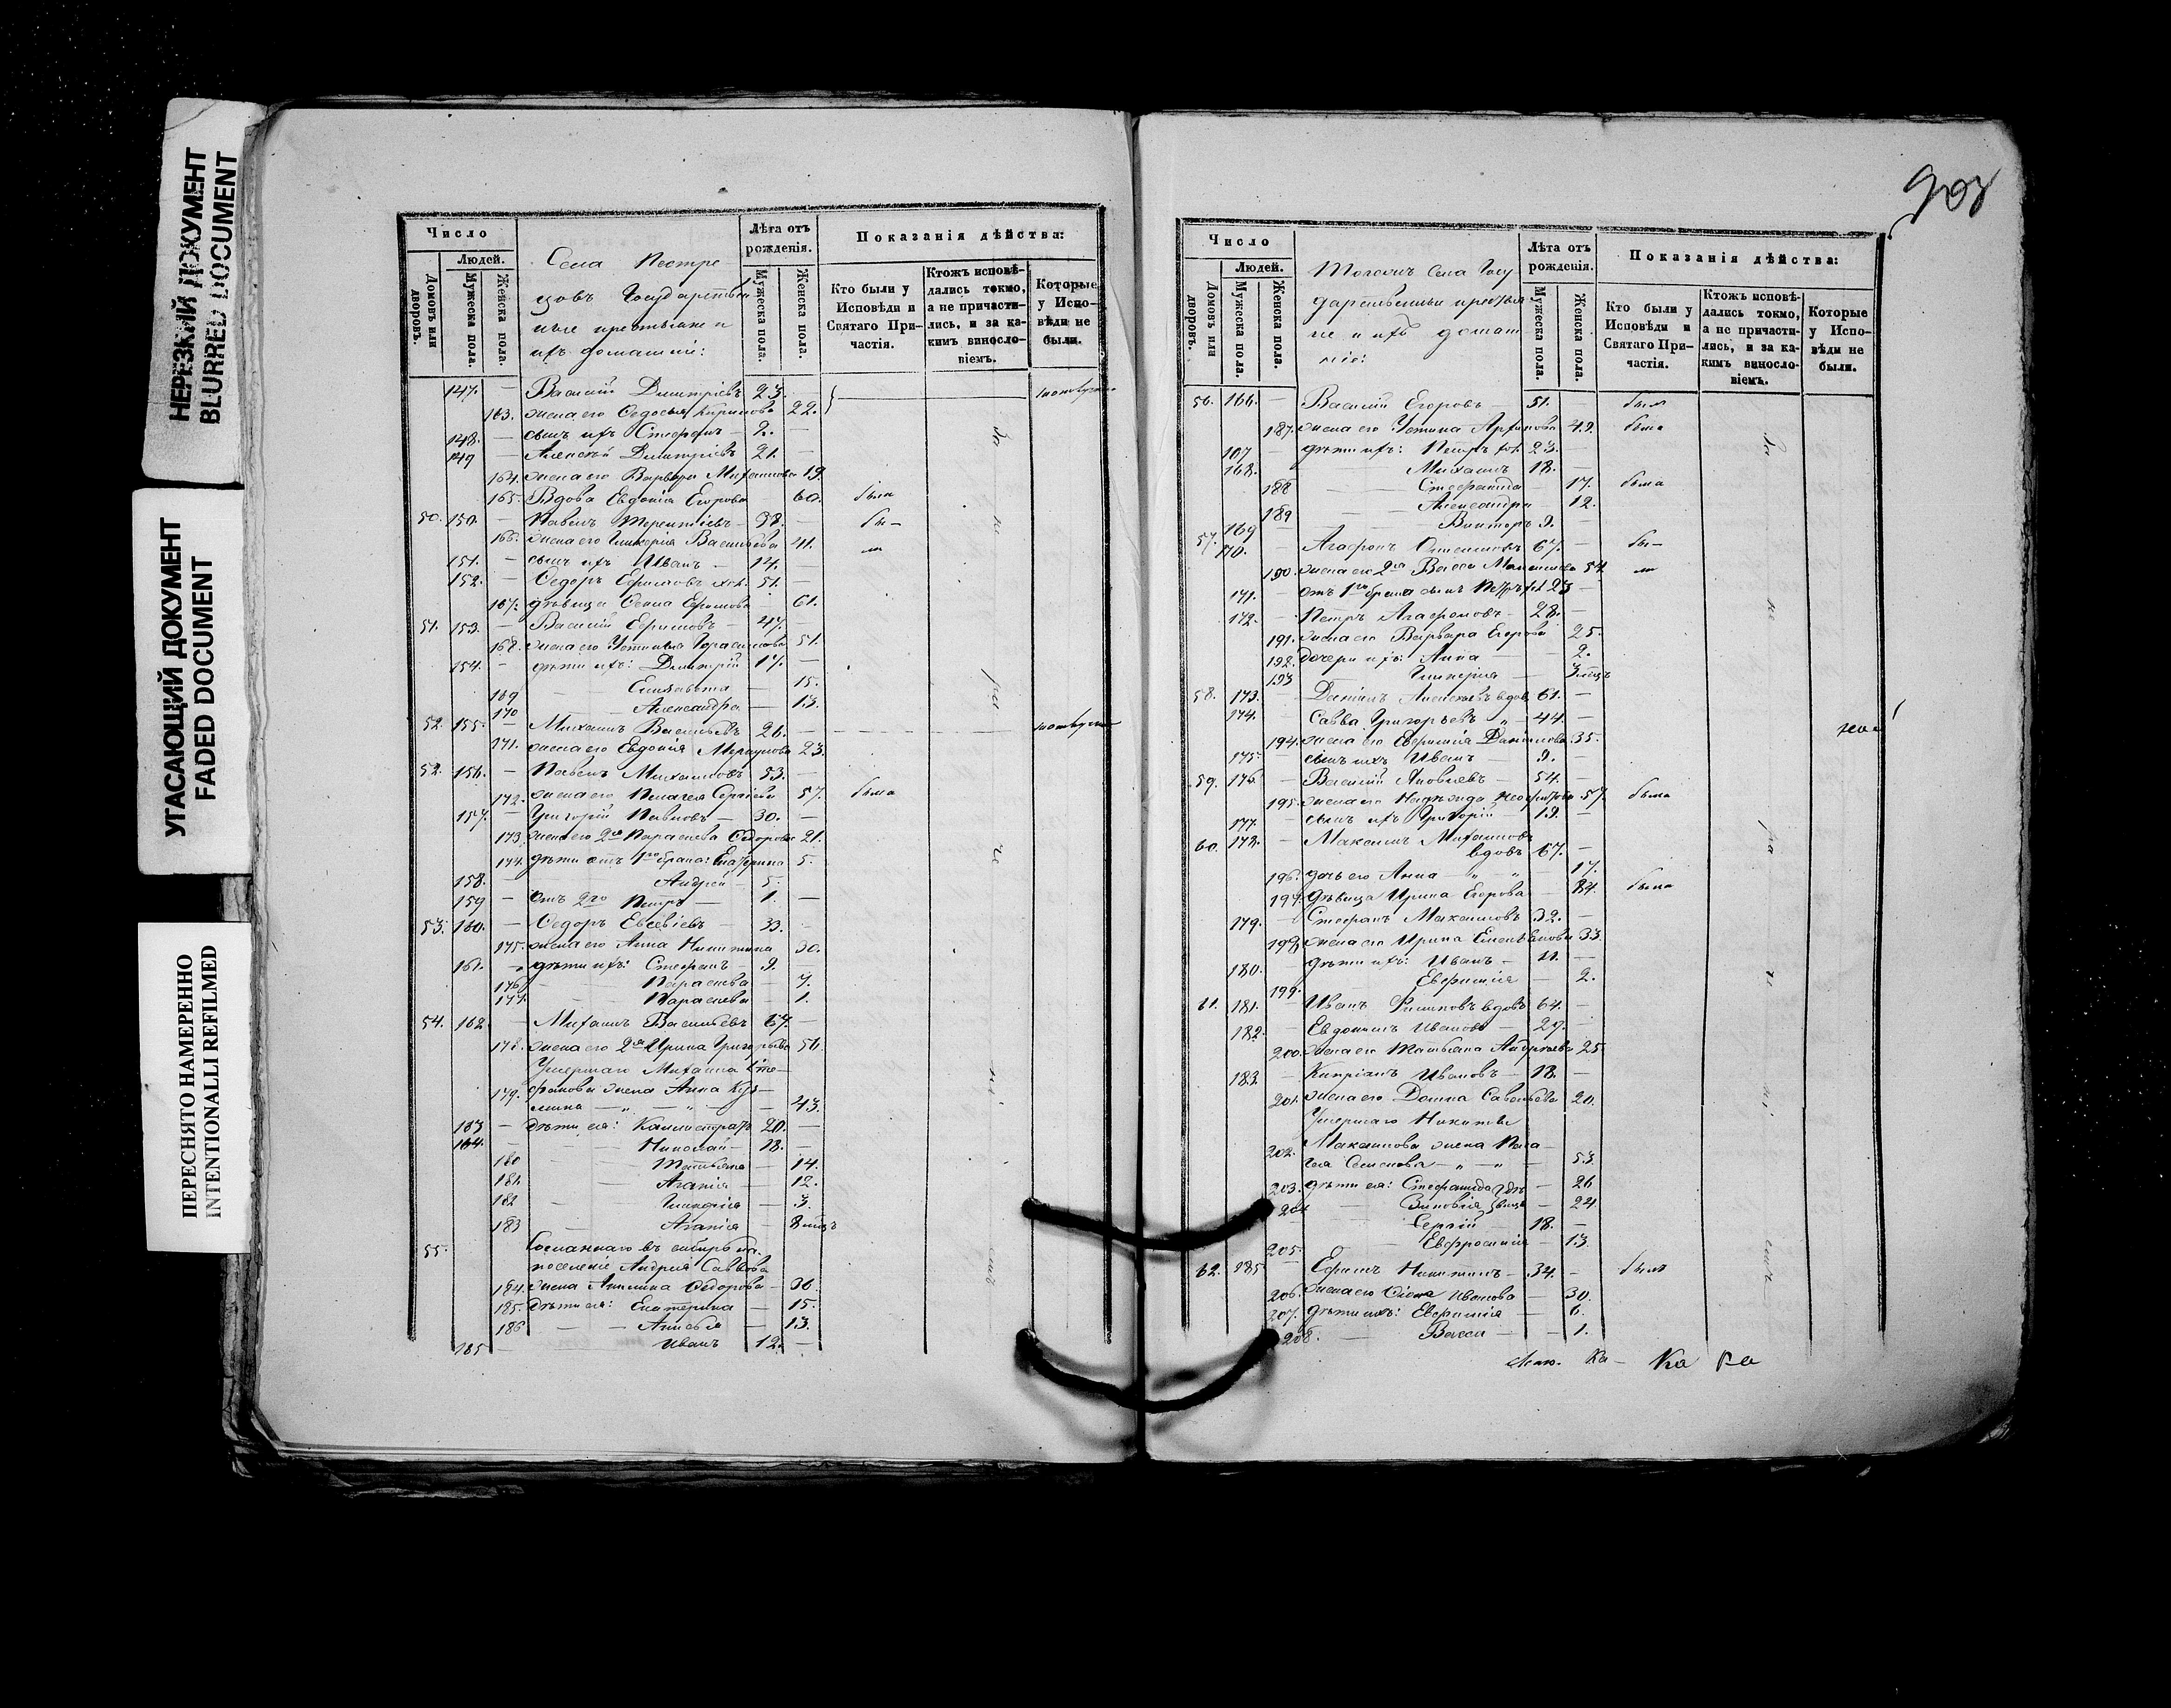 НЕРЕЗКИЙ ДОКУМЕНТ
BLURRED DOCUMENT
УГАСАЮЩИЙ ДОКУМЕНТ
FADED DOCUMENT
ПЕРЕСНЯТО НАМЕРЕННО
INTENTIONALLI REFILMED
Число
Людей.
Домовъ или дворовъ.
Мужеска пола.
Женска пола.
Села Пестре
цовъ Государствен
ные крестьяне и
ихъ домашніе:
Лѣта отъ рожденія.
Мужеска пола.
Женска пола.
Показанія дѣйства:
Кто были у Исповѣди и Святаго Причастія.
Ктожъ исповѣдались токмо, а не причастились, и за какимъ винословіемъ.
Которые у Исповѣди не были.
147. — Василій Димитріевъ 23.
163. жена его Федосья 22.
148. — сынъ ихъ Стефанъ — 2. —
149 — Алексѣй Димитріевъ 21. —
164. жена его Варвара Михаилова 19.
165. Вдова Евдокія Егорова 60. была
50. 150. — Павелъ Терентіевъ — 38. —
166. жена его Гликерія Васильева 41.
151. — сынъ ихъ Иванъ — 14. —
152. — Федоръ Ефимовъ хол. 51. —
167. дѣвица Ефимова 61.
51. 153. — Василій Ефимовъ — 47. —
168. жена его Устинья Герасимова 51.
154. — дѣти ихъ: Димитрій 17. —
169 — Елизавета — 15.
170 — Александра — 13.
52. 155. — Михаилъ Васильевъ 26. —
171. жена его Евдокія 23.
52. 156. — Павелъ Михаиловъ 53. —
172. жена его Пелагея Сергіева 57. была
157. — Григорій Павловъ — 30. —
173. жена его 2я Параскева Федорова 21.
174. дѣти отъ 1го брака: Екатерина 5.
158. — Андрей — 5.
159 — Отъ 2го Петръ — 1. —
53. 160. — Федоръ Евсевіевъ — 33. —
175. жена его Анна Никитина 30.
161. дѣти ихъ: Стефанъ — 9. —
176 — Параскева — 7.
177. — Параскева — 1.
54. 162. — Михаилъ Васильевъ 67. —
178. жена его 2я Ирина Григорьева 56.
Умершаго Михаила Сте-
179. фанова жена Анна Кузь-
мина — „ — „ — 43.
163 — дѣти ея: Каллистратъ 20. —
164. — Николай — 18. —
180 — Татьяна — 14.
181 — Агапія — 12.
182 — Гликерія — 3.
183 — Агапія — 8 мѣцъ
55. Сосланнаго въ сибирь на
поселеніе Андрея Саввова
184. жена Акилина Федорова — 36.
185. Дѣти ея: Екатерина — 15.
186 — — Анисья — 13.
165 — Иванъ 12. —
Число
Людей.
Домовъ или дворовъ.
Мужеска пола.
Женска пола.
Тогожъ Села Госу
дарственные крестья
не и ихъ домаш
ніе:
Лѣта отъ рожденія.
Мужеска пола.
Женска пола.
Показанія дѣйства:
Кто были у Исповѣди и Святаго Причастія.
Ктожъ исповѣдались токмо, а не причастились, и за какимъ винословіемъ.
Которые у Исповѣди не были.
56. 166. — Василій Егоровъ 51. — былъ
187. жена его Устина 49. была
167 — дѣти ихъ: Петръ хол. 23. —
168. Михаилъ 18. —
188 — Стефанида — 17. была
189 — Александра 12.
169 — Викторъ 9. —
57. 170. — Агафонъ 67. —
190. жена его 2я Васса 54.
171. — отъ 1го брака сынъ Петръ хол 23 —
172. — Петръ Агафоновъ — 28. —
191. жена его Варвара Егорова 25.
192. Дочери ихъ: Анна — 2.
193 — Гликерія — 3 мѣцъ
58. 173. — Даніилъ Алексѣевъ вдов. 61. —
174. — Савва Григорьевъ „ — 44. —
194. жена его Евфимія Даніилова 35.
175. — сынъ ихъ Иванъ — 9. —
59. 176. — Василій Яковлевъ — 54. —
195. жена его Надежда 57. была
177. — сынъ ихъ Григорій — 19. —
60. 178. — Максимъ Михаиловъ
вдовъ 67. —
196. дочь его Анна „ „ — 17.
197. дѣвица Ирина Егорова — была
179. — Стефанъ Максимовъ 32. —
198. жена его Ирина 33.
180. — дѣти ихъ: Иванъ — 11. —
199. — Евфимія — 2.
61. 181. — Иванъ Филиповъ вдовъ 64. —
182. — Евдокимъ Ивановъ — 29. —
200. жена его Татьяна Андреева 25.
183. — Кипріанъ Ивановъ — 18. —
201. жена его Домна Савельева 20.
Умершаго Никиты
202. Максимова жена Пела-
гея Семенова — „ — „ — 53.
203. дѣти ея: Стефанида дѣ — 26
204 Зиновія вицы — 24.
Сергій — 18. —
205. — Евфросинія — 13.
62. 185. — Ефимъ Никитинъ — 34. — былъ
206. жена его Иванова — 30.
207. дѣти ихъ: Евфимія — 6.
208. — Васса — — 1.